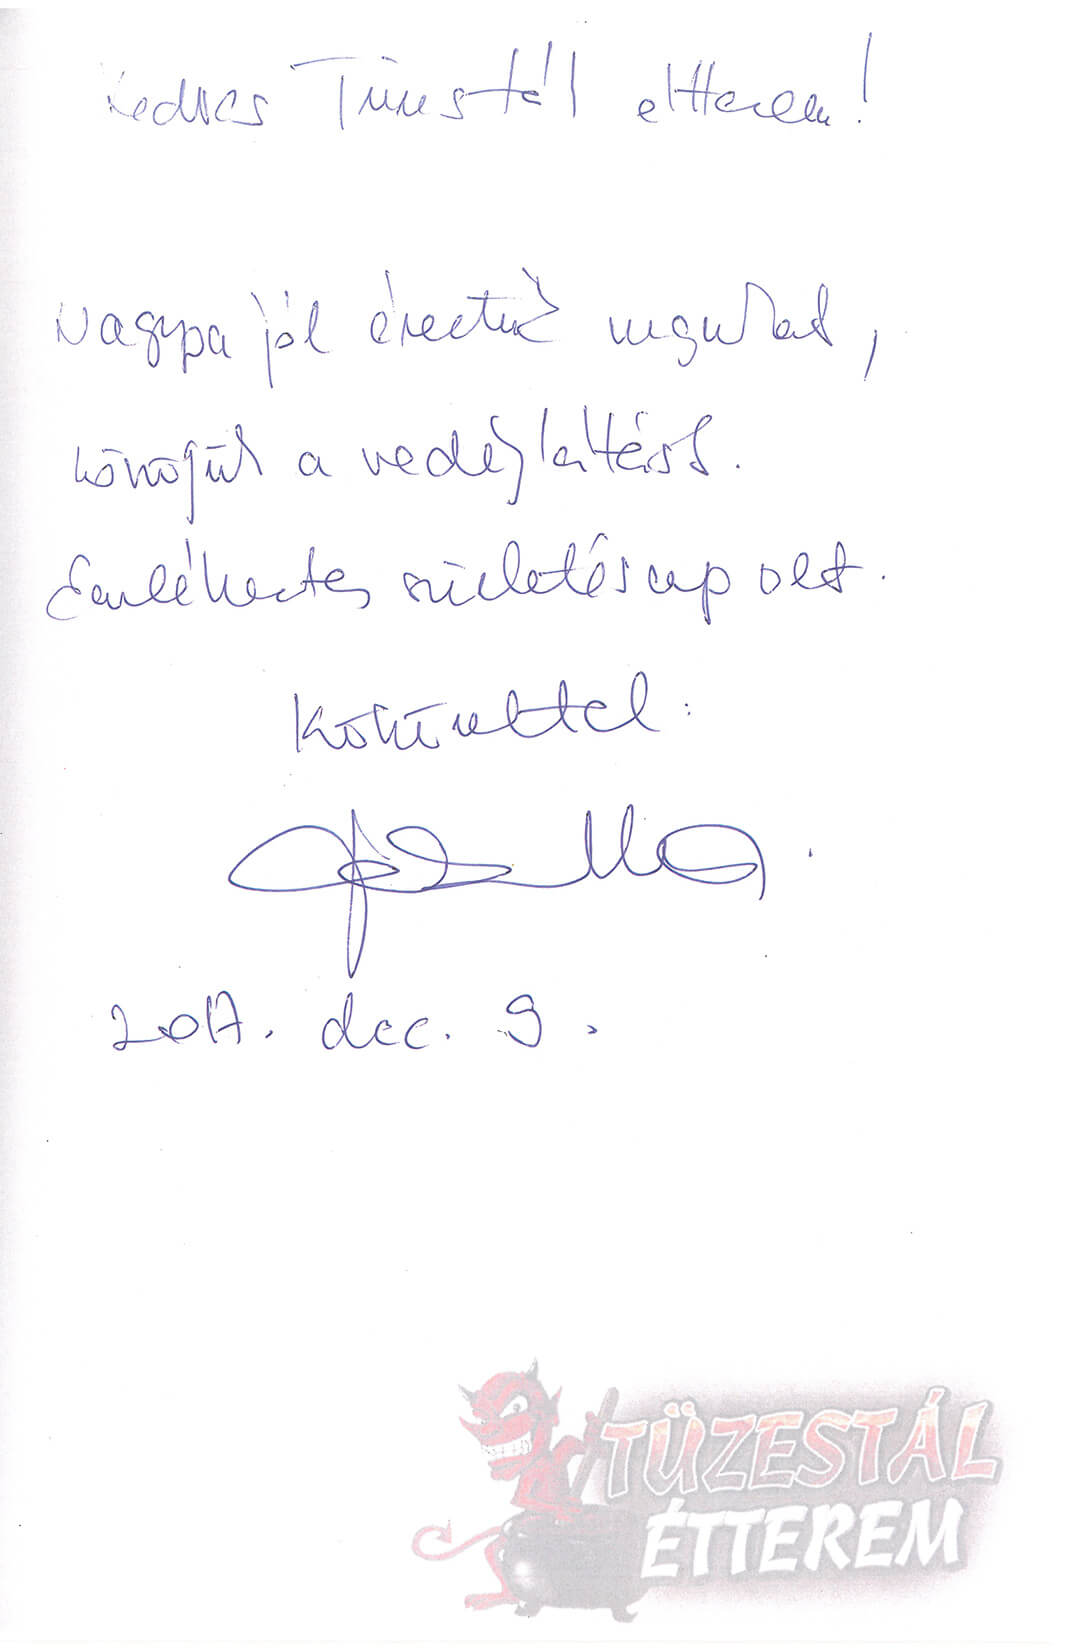 Kedves Tüzestál étterem!
Nagyon jól éreztük magunkat,
köszönjük a vendéglátást.
Emlékezetes születésnap volt.
Köszönettel:
2017. dec. 9.
TÜZESTÁL
ÉTTEREM